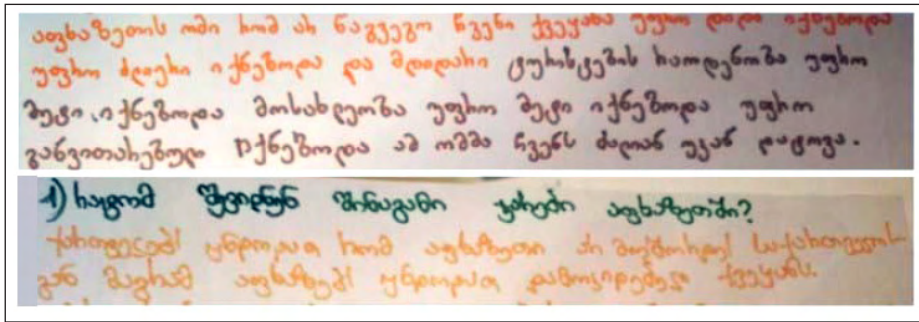 აფხაზეთის ომი რომ არ წაგვეგო ჩვენი ქვეყანა უფრო დიდი იქნებოდა
უფრო ძლიერი იქნებოდა და მდიდარი ტურისტების რაოდენობა უფრო
მეტი იქნებოდა მოსახლეობა უფრო მეტი იქნებოდა უფრო
განვითარებული იქნებოდა ამ ომმა ჩვენს ძალიან უკან დატოვა.
1) რატომ შევიდნენ შინაგანი ჯარები აფხაზეთში?
ქართველებს უნდოდათ რომ აფხაზეთი არ მოშორდეს საქართველოს-
გან მაგრამ აფხაზებს უნდოდათ დამოუკიდებელი ქვეყანა.